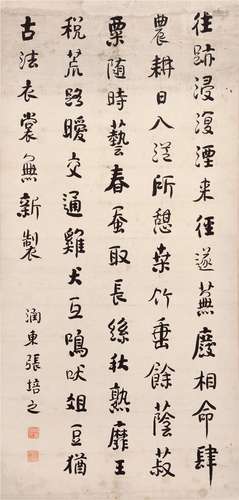 往跡浸復湮来徑遂蕪廢相命肆
農耕日入從所憩桑竹垂餘蔭菽
粟隨時藝春蚕取長絲秋熟靡王
税荒路曖交通雞犬互鳴吠俎豆猶
古法衣裳無新製
涵東張培之